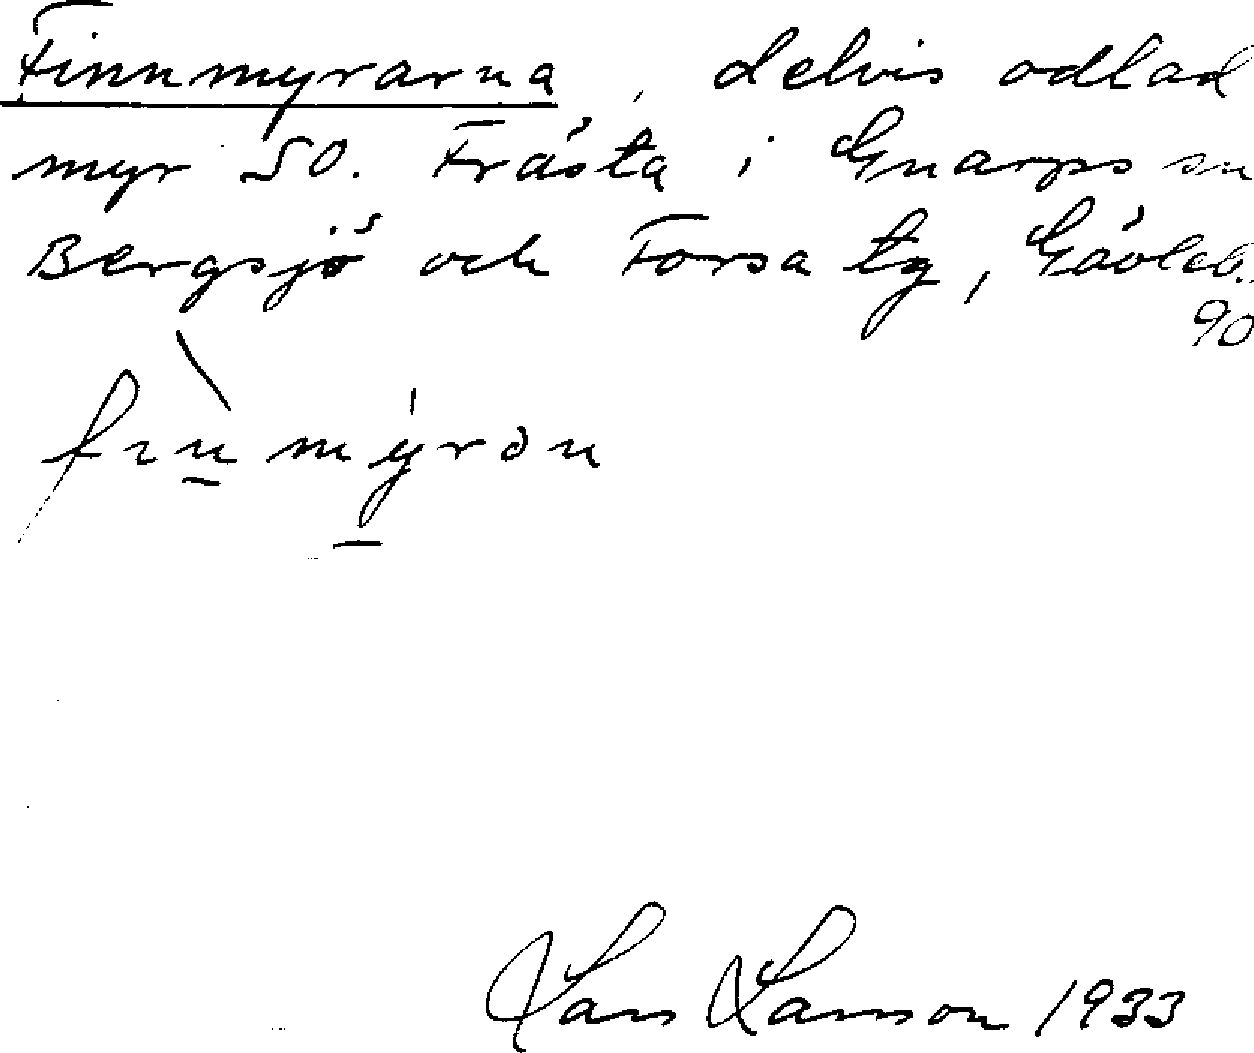 Finnmyrarna, delvis odlad
myr SO. Frästa i Gnarps sn
Bergsjö och Forsa tg, Gävleb.
90
Lars Larsson 1933